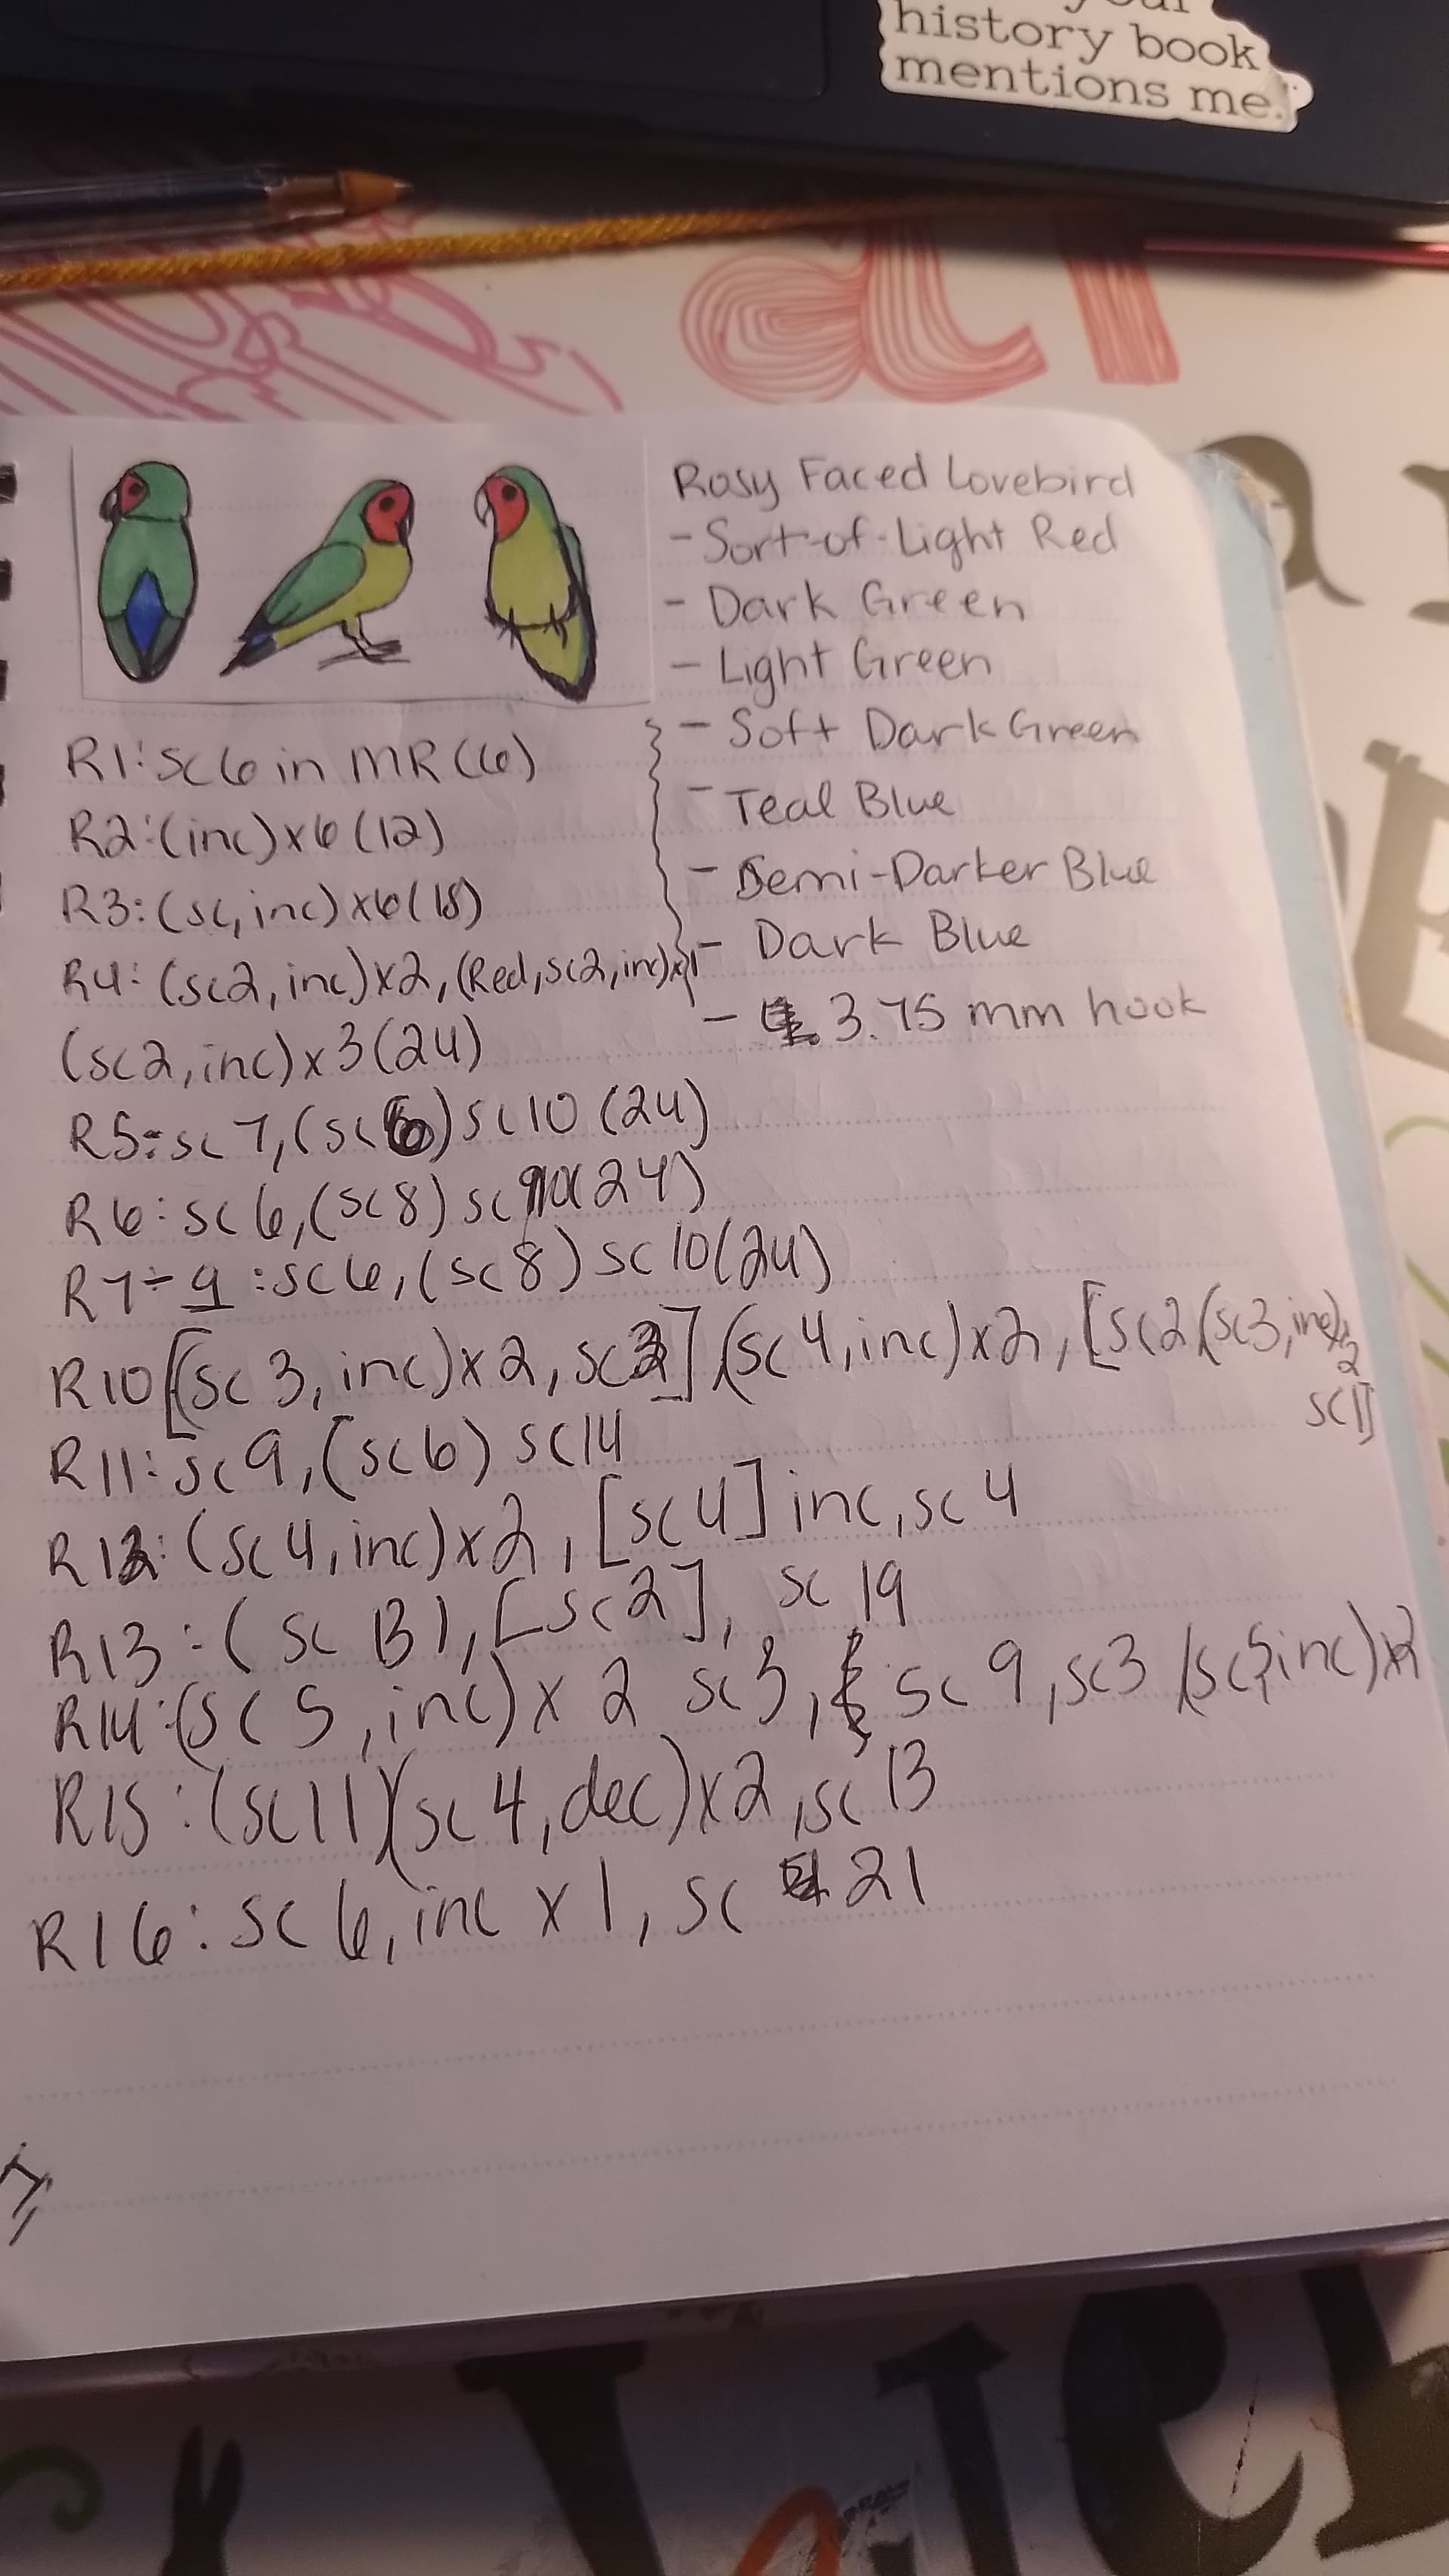 history book
mentions me.
Rosy Faced Lovebird
- Sort-of-Light Red
- Dark Green
- Light Green
- Soft Dark Green
- Teal Blue
- Semi-Darker Blue
- Dark Blue
- 3.75 mm hook
R1: sc 6 in MR (6)
R2: (inc) x 6 (12)
R3: (sc, inc) x 6 (18)
R4: (sc2, inc) x 2, (Red, sc2, inc) x 1
(sc2, inc) x 3 (24)
R5: sc 7, (sc 6) sc 10 (24)
R6: sc 6, (sc 8) sc (24)
R7 - 9: sc 6, (sc 8) sc 10 (24)
R10 [(sc 3, inc) x 2, sc 2] (sc 4, inc) x 2, [sc 2 (sc 3, inc) x 2
sc 1]
R11: sc 9, (sc 6) sc 14
R12: (sc 4, inc) x 2, [sc 4] inc, sc 4
R13: (sc 13), [sc 2], sc 19
R14: (sc 5, inc) x 2 sc 3, sc 9, sc 3 (sc 5, inc) x 2
R15: (sc 11) (sc 4, dec) x 2, sc 13
R16: sc 6, inc x 1, sc 21